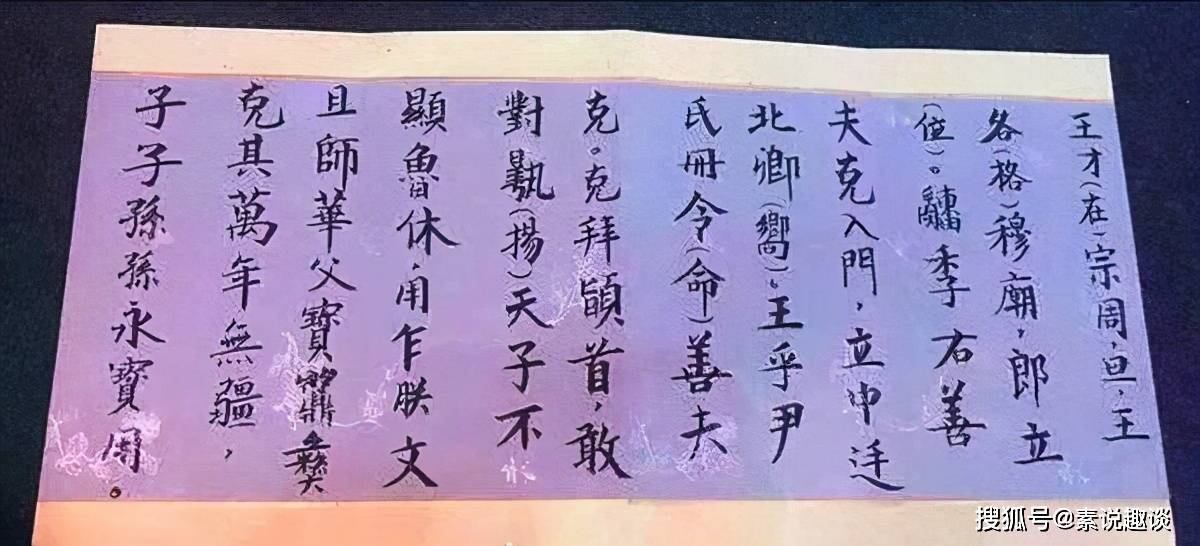 王才(在)宗周,旦,王
各(格)穆廟,郎立
(位)。䌛季右善
夫克入門,立中廷
北卿(嚮)。王乎尹
氏冊令(命)善夫
克。克拜䭫首,敢
對揚(揚)天子不
顯魯休,用乍朕文
且師華父寶鼎彝
克其萬年無疆,
子子孫孫永寶用。
搜狐号@素说趣谈